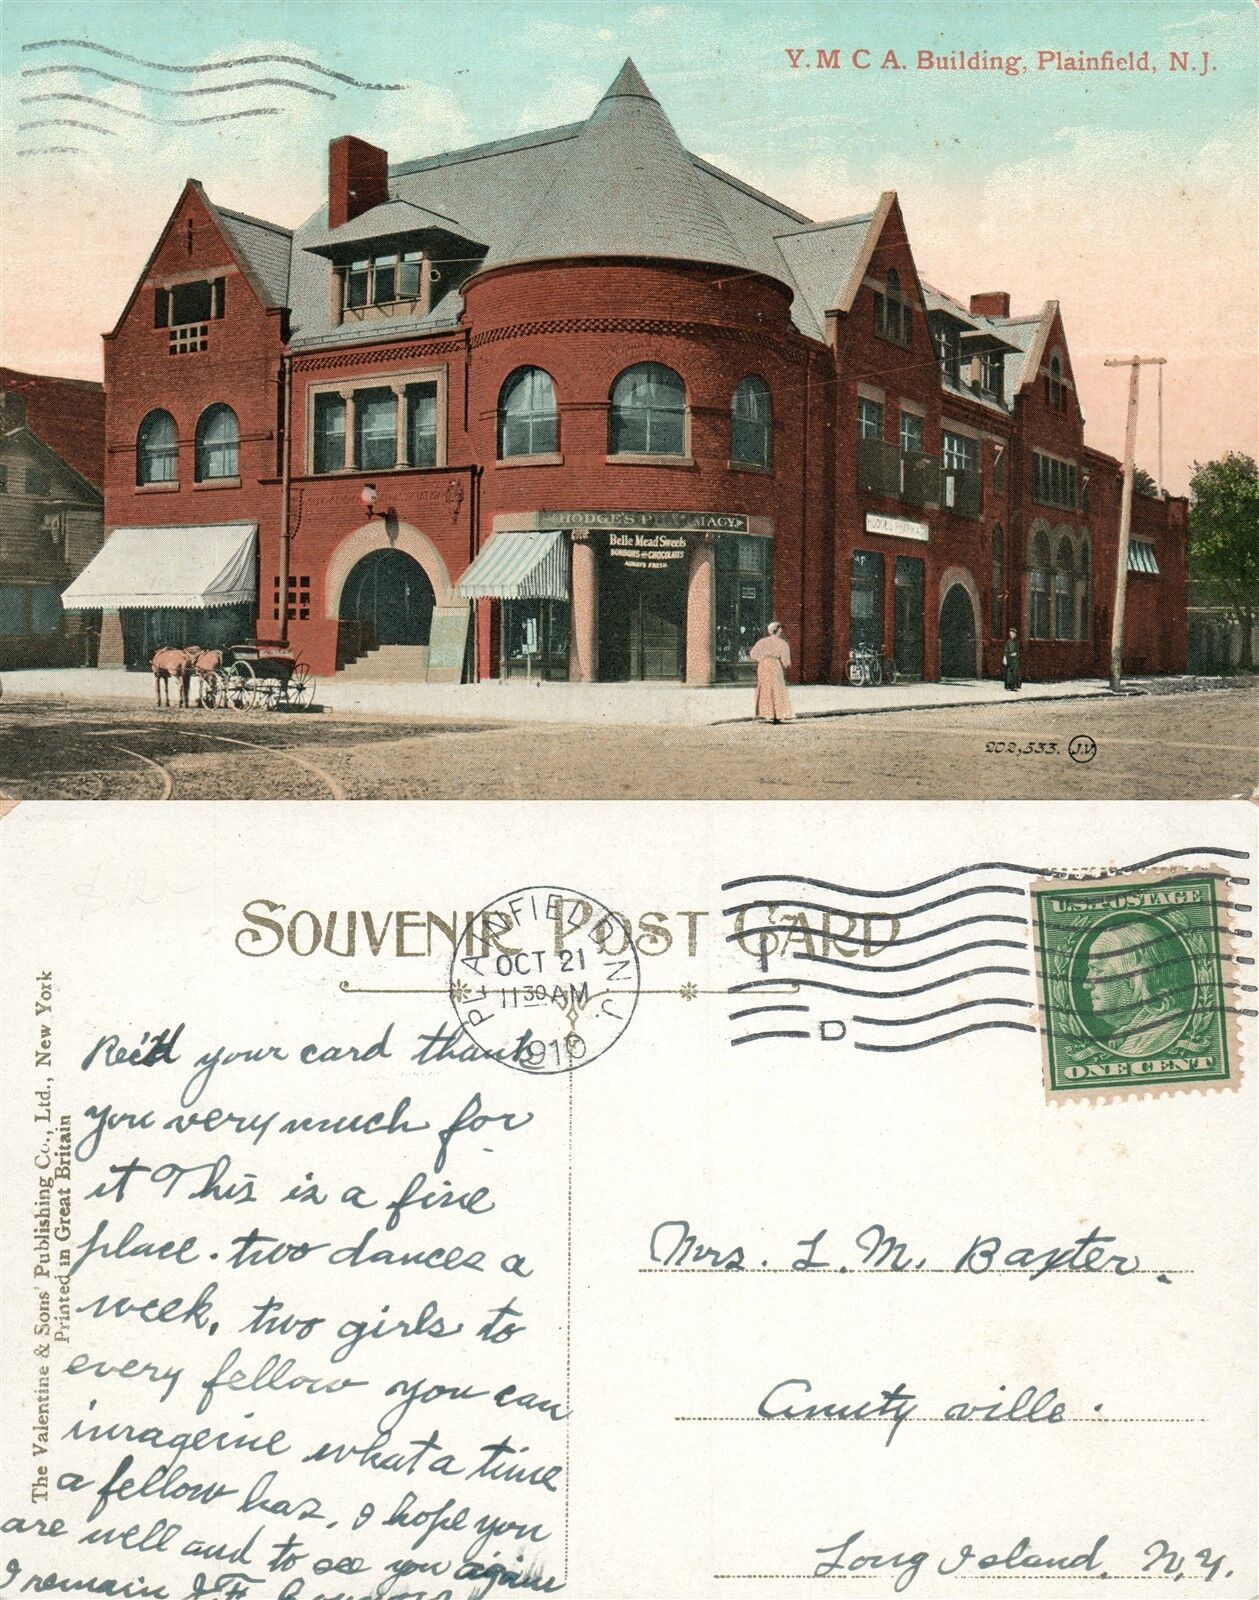 Y. M C A. Building, Plainfield, N. J.
HODGE'S PHARMACY
Belle Mead Sweets
BONBONS and CHOCOLATES
ALWAYS FRESH
HODGE'S PHARMACY
202,533. J.V
SOUVENIR POST CARD
PLAINFIELD, N.J.
OCT 21
11 30 AM
1910
D
U.S. POSTAGE
ONE CENT
The Valentine & Sons' Publishing Co., Ltd., New York
Printed in Great Britain
Rec'd your card thank
you very much for
it This is a fine
place. two dances a
week. two girls to
every fellow you can
imageine what a time
a fellow has. I hope you
are well and to see you again
I remain J. F.
Mrs. L. M. Baxter.
Amity ville.
Long Island. N.Y.